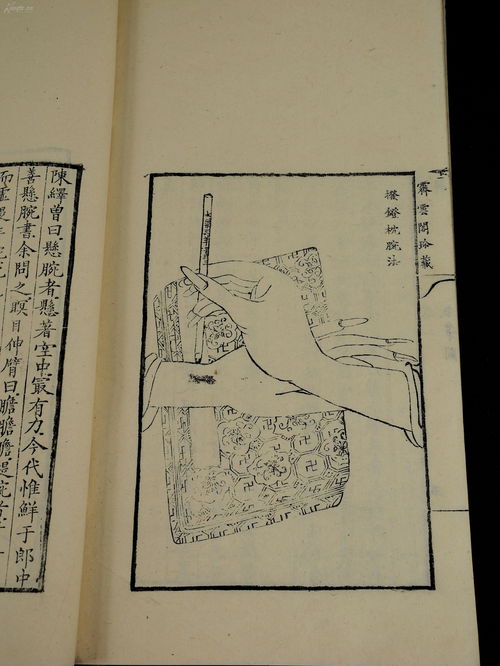 霽雲閣珍藏
撥鐙枕腕法
陳繹曾曰懸腕者懸著空中㝡有力今代惟鮮于郎中
善懸腕書余問之瞑目伸臂曰膽膽膽提腕者
而虛